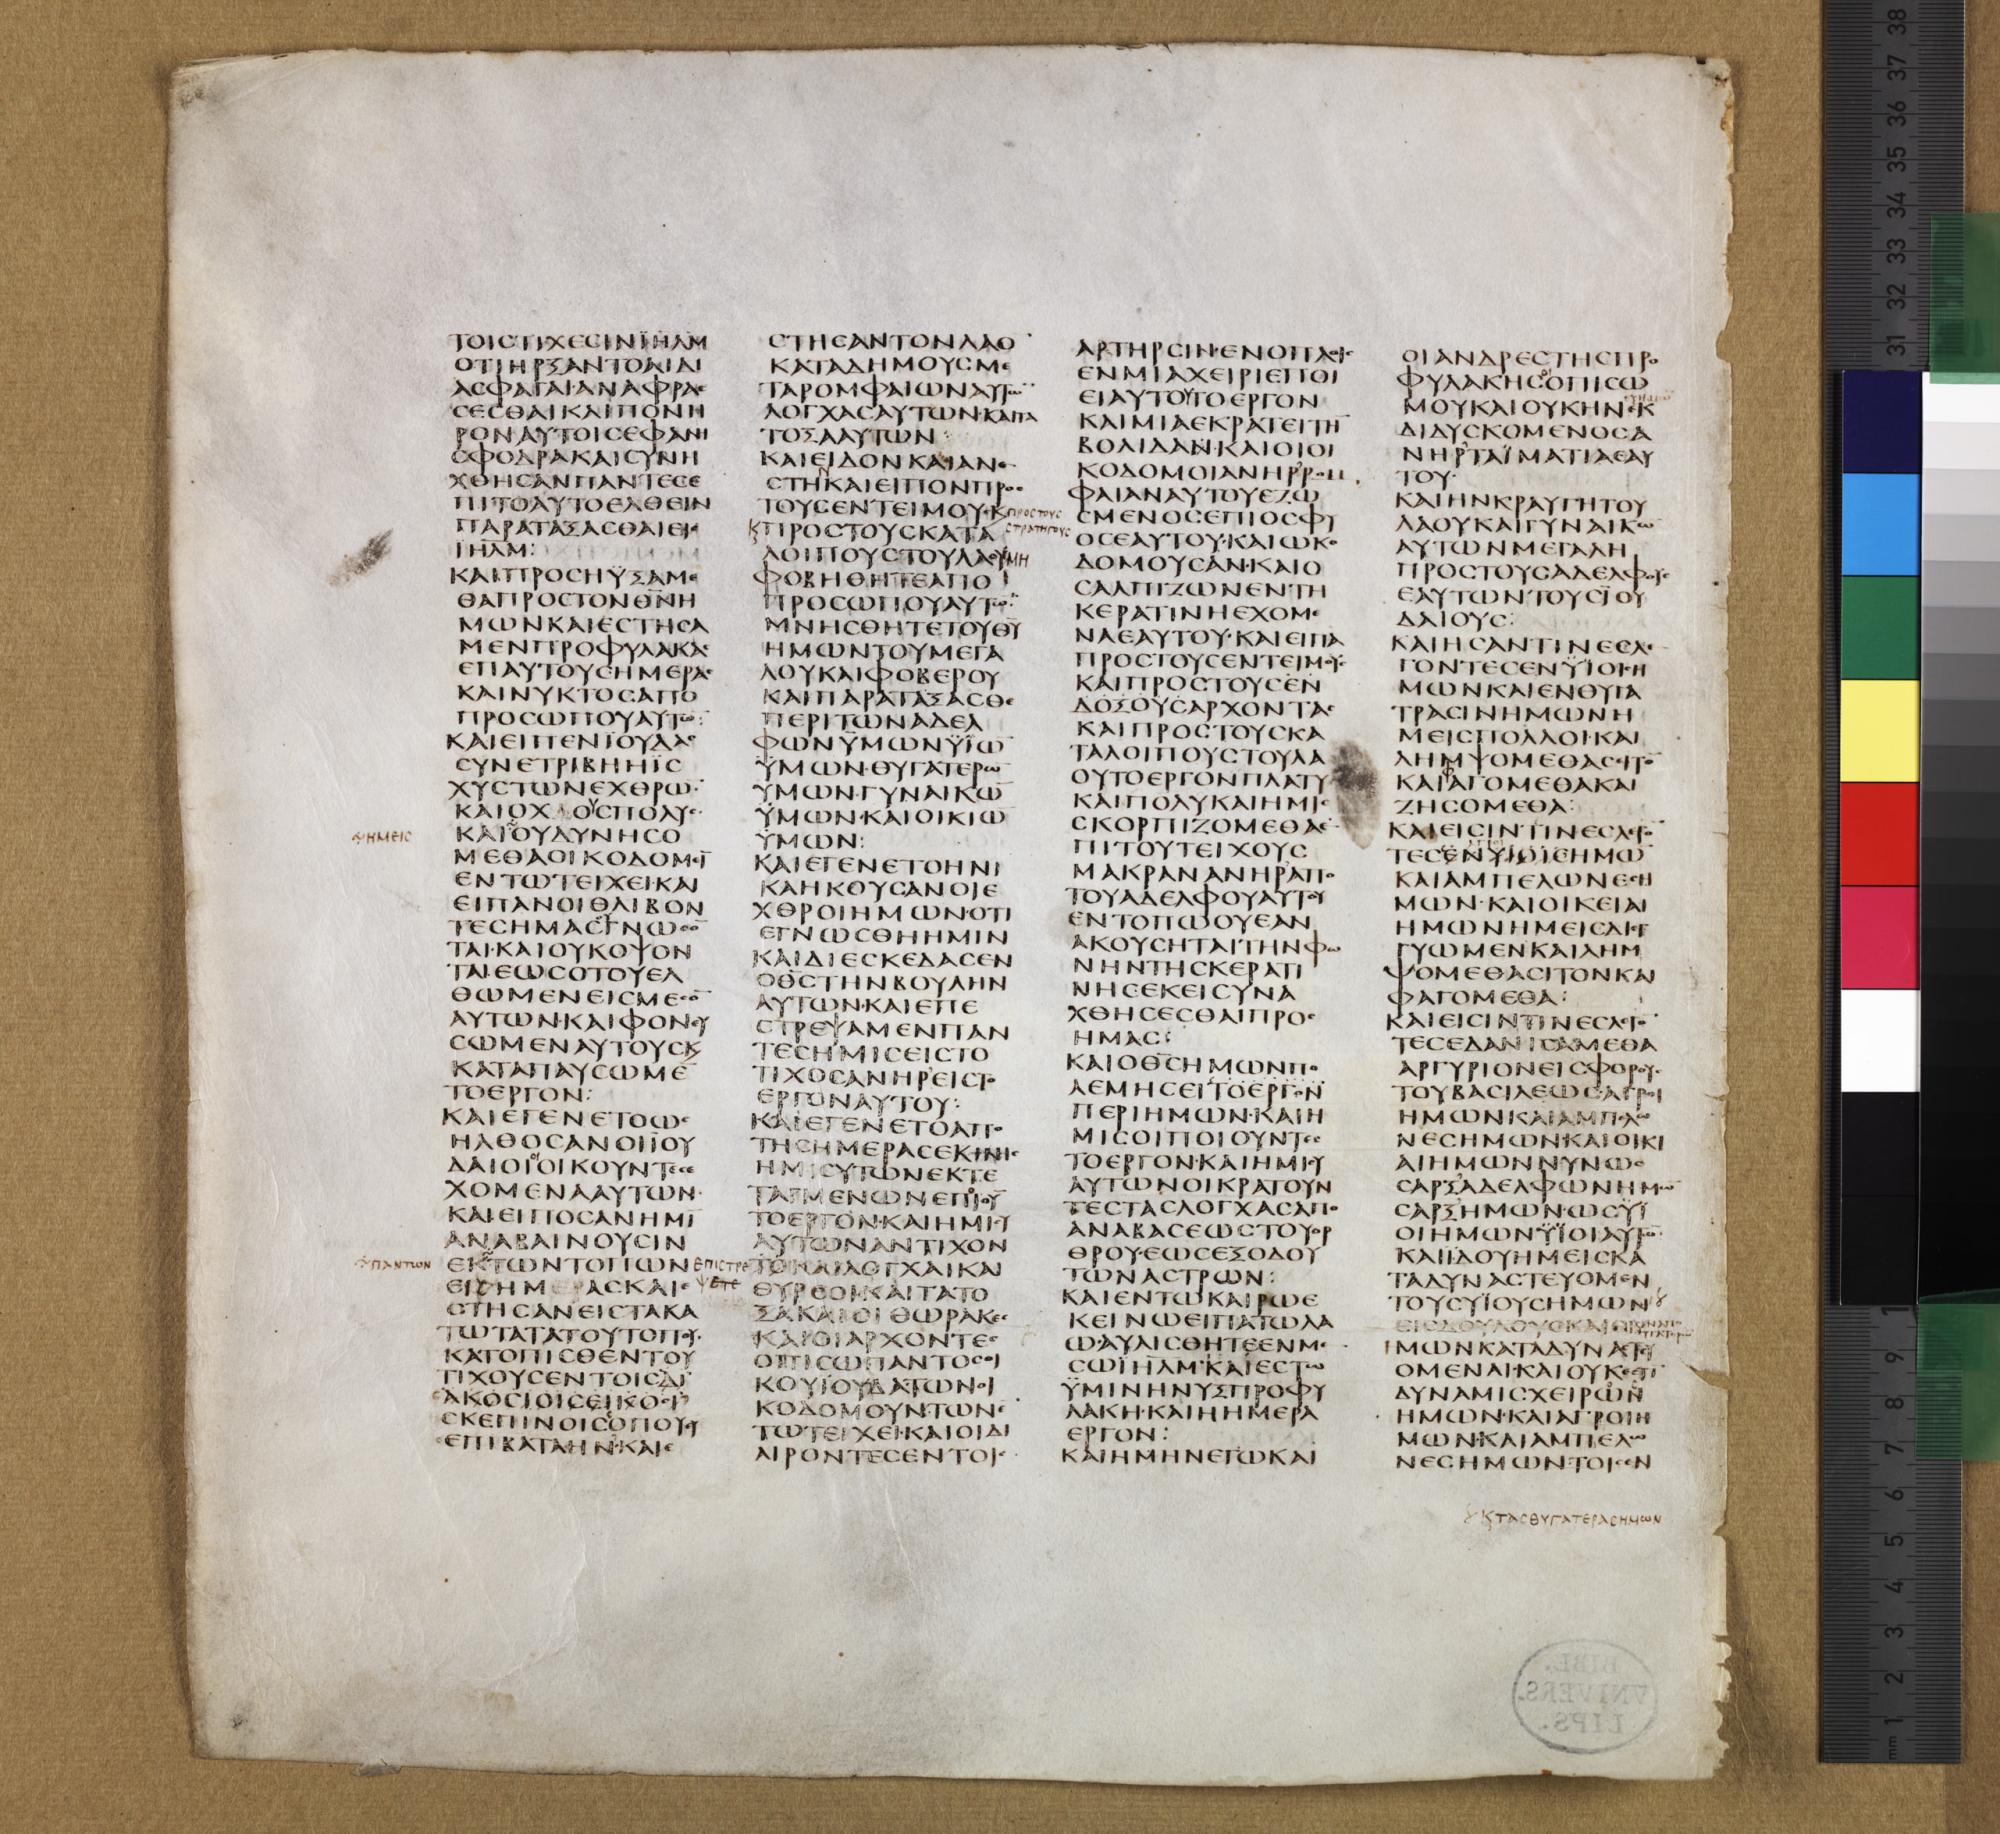 ΤΟΙϹΤΙΧΕϹΙΝΪΗΛΜ
ΟΤΙΗΡΞΑΝΤΟΑΙΔΙ
ΑϹΦΑΓΑΙΑΝΑΦΡΑϹ
ϹΕϹΘΑΙΚΑΙΠΟΝΗ
ΡΟΝΑΥΤΟΙϹΕΦΑΝΗ
ϹΦΟΔΡΑΚΑΙϹΥΝΗ
ΧΘΗϹΑΝΠΑΝΤΕϹΕ
ΠΙΤΟΑΥΤΟΕΛΘΕΙΝ
ΠΑΡΑΤΑΞΑϹΘΑΙΕΝ
ΪΗΛΜ:
ΚΑΙΠΡΟϹΗΫΞΑΜΕ
ΘΑΠΡΟϹΤΟΝΘΝΗ
ΜΩΝΚΑΙΕϹΤΗϹΑ
ΜΕΝΠΡΟΦΥΛΑΚΑϹ
ΕΠΑΥΤΟΥϹΗΜΕΡΑϹ
ΚΑΙΝΥΚΤΟϹΑΠΟ
ΠΡΟϹΩΠΟΥΑΥΤΩ:
ΚΑΙΕΙΠΕΝΪΟΥΔΑϹ
ϹΥΝΕΤΡΙΒΗΗΪϹ
ΧΥϹΤΩΝΕΧΘΡΩ
ΚΑΙΟΧΟΥϹΠΟΛΥϹ
ΚΑΙΟΥΔΥΝΗϹΟ
ΜΕΘΑΟΙΚΟΔΟΜΙ
ΕΝΤΩΤΕΙΧΕΙΚΑΙ
ΕΙΠΑΝΟΙΘΛΙΒΟΝ
ΤΕϹΗΜΑϹΓΝΩϹΟ
ΤΑΙ·ΚΑΙΟΥΚΟΨΟΝ
ΤΑΙΕΩϹΟΤΟΥΕΛ
ΘΩΜΕΝΕΙϹΜΕϹΟ
ΑΥΤΩΝΚΑΙΦΟΝΕΥ
ϹΩΜΕΝΑΥΤΟΥϹΚ
ΚΑΤΑΠΑΥϹΩΜΕ
ΤΟΕΡΓΟΝ:
ΚΑΙΕΓΕΝΕΤΟΩϹ
ΗΛΘΟϹΑΝΟΙΪΟΥ
ΔΑΙΟΙΟΙΚΟΥΝΤΕϹΕ
ΧΟΜΕΝΑΑΥΤΩΝ·
ΚΑΙΕΙΠΟϹΑΝΗΜΙ
ΑΝΑΒΑΙΝΟΥϹΙΝ
ΕΚΤΩΝΤΟΠΩΝ
ΕΙϹΗΜΑϹΚΑΙΕ
ϹΤΗϹΑΝΕΙϹΤΑΚΑ
ΤΩΤΑΤΑΤΟΥΤΟΠΟΥ
ΚΑΤΟΠΙϹΘΕΝΤΟΥ
ΤΙΧΟΥϹΕΝΤΟΙϹ
ϹΚΕΠΙΝΟΙϹΟΠΟΥ
ΗΜΕΙϹ
ΠΑΝΤΩΝ
ΕΠΙϹΤΡΕ
ΨΕΤΕ
ϹΤΗϹΑΝΤΟΝΛΑΟ
ΚΑΤΑΔΗΜΟΥϹΜΕ
ΤΑΡΟΜΦΑΙΩΝΑΥΤΩ
ΛΟΓΧΑϹΑΥΤΩΝΚΑΙΤΑ
ΤΟΞΑΑΥΤΩΝ:
ΚΑΙΕΙΔΟΝΚΑΙΑΝΕ
ϹΤΗΚΑΙΕΙΠΟΝΠΡΟϹ
ΤΟΥϹΕΝΤΕΙΜΟΥϹ
ΠΡΟϹΤΟΥϹΚΑΤΑ
ΛΟΙΠΟΥϹΤΟΥΛΑΟΥΜΗ
ΦΟΒΗΘΗΤΕΑΠΟ
ΠΡΟϹΩΠΟΥΑΥΤΩ:
ΜΝΗϹΘΗΤΕΤΟΥΘΥ
ΗΜΩΝΤΟΥΜΕΓΑ
ΛΟΥΚΑΙΦΟΒΕΡΟΥ
ΚΑΙΠΑΡΑΤΑΞΑϹΘΕ
ΠΕΡΙΤΩΝΑΔΕΛ
ΦΩΝΫΜΩΝΫΪΩ
ΫΜΩΝ·ΘΥΓΑΤΕΡΩ
ΫΜΩΝ·ΓΥΝΑΙΚΩ
ΫΜΩΝ·ΚΑΙΟΙΚΙΩ
ΫΜΩΝ:
ΚΑΙΕΓΕΝΕΤΟΗΝΙ
ΚΑΗΚΟΥϹΑΝΟΙΕ
ΧΘΡΟΙΗΜΩΝ·ΟΤΙ
ΕΓΝΩϹΘΗΗΜΙΝ
ΚΑΙΔΙΕϹΚΕΔΑϹΕΝ
ΟΘϹΤΗΝΒΟΥΛΗΝ
ΑΥΤΩΝ·ΚΑΙΕΠΕ
ϹΤΡΕΨΑΜΕΝΠΑΝ
ΤΕϹΗΜΙϹΕΙϹΤΟ
ΤΙΧΟϹΑΝΗΡΕΙϹΤΟ
ΕΡΓΟΝΑΥΤΟΥ:
ΚΑΙΕΓΕΝΕΤΟΑΠΟ
ΤΗϹΗΜΕΡΑϹΕΚΙΝΗϹ
ΗΜΙϹΥΤΩΝΕΚΤΕ
ΤΑΓΜΕΝΩΝΕΠΟΙΟΥ
ΤΟΕΡΓΟΝ·ΚΑΙΗΜΙϹΥ
ΑΥΤΩΝΑΝΤΙΧΟΝ
ΤΟΚΑΙΛΟΓΧΑΙΚΑΙ
ΘΥΡΕΟΙΚΑΙΤΑΤΟ
ΞΑΚΑΙΟΙΘΩΡΑΚΕϹ
ΚΑΙΟΙΑΡΧΟΝΤΕϹ
ΟΠΙϹΩΠΑΝΤΟϹΟΙ
ΚΟΥΪΟΥΔΑΤΩΝΟΙ
ΚΟΔΟΜΟΥΝΤΩΝΕ
ΤΩΤΕΙΧΕΙ·ΚΑΙΟΙΔΙ
ΑΙΡΟΝΤΕϹΕΝΤΟΙϹ
ΠΡΟϹΤΟΥϹ
ϹΤΡΑΤΗΓΟΥϹ
ΑΡΤΗΡϹΙΝ·ΕΝΟΠΛΟΙ
ΕΝΜΙΑΧΕΙΡΙΕΠΟΙ
ΕΙΑΥΤΟΥΤΟΕΡΓΟΝ
ΚΑΙΜΙΑΕΚΡΑΤΕΙΤΗ
ΒΟΛΙΔΑΝ·ΚΑΙΟΙΟΙ
ΚΟΔΟΜΟΙΑΝΗΡΡΟΜ
ΦΑΙΑΝΑΥΤΟΥΕΖΩ
ϹΜΕΝΟϹΕΠΙΟϹΦΥ
ΟϹΕΑΥΤΟΥ·ΚΑΙΩΚΟ
ΔΟΜΟΥϹΑΝ·ΚΑΙΟ
ϹΑΛΠΙΖΩΝΕΝΤΗ
ΚΕΡΑΤΙΝΗΕΧΟΜΕ
ΝΑΕΑΥΤΟΥ·ΚΑΙΕΙΠΑ
ΠΡΟϹΤΟΥϹΕΝΤΕΙΜΟΥϹ
ΚΑΙΠΡΟϹΤΟΥϹΕΝ
ΔΟΞΟΥϹΑΡΧΟΝΤΑϹ
ΚΑΙΠΡΟϹΤΟΥϹΚΑ
ΤΑΛΟΙΠΟΥϹΤΟΥΛΑ
ΟΥΤΟΕΡΓΟΝΠΛΑΤΥ
ΚΑΙΠΟΛΥΚΑΙΗΜΙϹ
ϹΚΟΡΠΙΖΟΜΕΘΑΕ
ΠΙΤΟΥΤΕΙΧΟΥϹ
ΜΑΚΡΑΝΑΝΗΡΑΠΟ
ΤΟΥΑΔΕΛΦΟΥΑΥΤΟΥ
ΕΝΤΟΠΩΟΥΕΑΝ
ΑΚΟΥϹΗΤΑΙΤΗΝΦΩ
ΝΗΝΤΗϹΚΕΡΑΤΙ
ΝΗϹΕΚΕΙϹΥΝΑ
ΧΘΗϹΕϹΘΑΙΠΡΟϹ
ΗΜΑϹ:
ΚΑΙΟΘϹΗΜΩΝΠΟ
ΛΕΜΗϹΕΙΤΟΕΡΓΟΝ
ΠΕΡΙΗΜΩΝ·ΚΑΙΗ
ΜΙϹΟΙΠΟΙΟΥΝΤΕϹ
ΤΟΕΡΓΟΝ·ΚΑΙΗΜΙϹΥ
ΑΥΤΩΝΟΙΚΡΑΤΟΥΝ
ΤΕϹΤΑϹΛΟΓΧΑϹΑΠΟ
ΑΝΑΒΑϹΕΩϹΤΟΥΟΡ
ΘΡΟΥ·ΕΩϹΕΞΟΔΟΥ
ΤΩΝΑϹΤΡΩΝ:
ΚΑΙΕΝΤΩΚΑΙΡΩΕ
ΚΕΙΝΩΕΙΠΑΤΩΛΑ
Ω·ΑΥΛΙϹΘΗΤΕΕΝΜΕ
ϹΩΪΗΛΜ·ΚΑΙΕϹΤΩ
ΫΜΙΝΗΝΥΞΠΡΟΦΥ
ΛΑΚΗ·ΚΑΙΗΗΜΕΡΑ
ΕΡΓΟΝ:
ΚΑΙΗΜΗΝΕΓΩΚΑΙ
ΟΙΑΝΔΡΕϹΤΗϹΠΡΟ
ΦΥΛΑΚΗϹΟΠΙϹΩ
ΜΟΥΚΑΙΟΥΚΗΝΕΚ
ΔΙΔΥϹΚΟΜΕΝΟϹΑ
ΝΗΡΤΑΪΜΑΤΙΑΕΑΥ
ΤΟΥ·
ΚΑΙΗΝΚΡΑΥΓΗΤΟΥ
ΛΑΟΥΚΑΙΓΥΝΑΙΚΩ
ΑΥΤΩΝΜΕΓΑΛΗ
ΠΡΟϹΤΟΥϹΑΔΕΛΦΟΥϹ
ΕΑΥΤΩΝΤΟΥϹΪΟΥ
ΔΑΙΟΥϹ:
ΚΑΙΗϹΑΝΤΙΝΕϹΛΕ
ΓΟΝΤΕϹΕΝΫΪΟΙϹΗ
ΜΩΝΚΑΙΕΝΘΥΓΑ
ΤΡΑϹΙΝΗΜΩΝΗ
ΜΕΙϹΠΟΛΛΟΙ·ΚΑΙ
ΛΗΜΨΟΜΕΘΑϹΙΤΟ
ΚΑΙΑΓΟΜΕΘΑΚΑΙ
ΖΗϹΟΜΕΘΑ:
ΚΑΙΕΙϹΙΝΤΙΝΕϹΛΕΓΟ
ΤΕϹΕΝΫΙΟΙϹΗΜΩ
ΚΑΙΑΜΠΕΛΩΝΕϹΗ
ΜΩΝ·ΚΑΙΟΙΚΕΙΑΙ
ΗΜΩΝΗΜΕΙϹΔΙΕΓ
ΓΥΩΜΕΝΚΑΙΛΗΜ
ΨΟΜΕΘΑϹΙΤΟΝΚΑΙ
ΦΑΓΟΜΕΘΑ:
ΚΑΙΕΙϹΙΝΤΙΝΕϹΛΕΓΟ
ΤΕϹΕΔΑΝΙϹΑΜΕΘΑ
ΑΡΓΥΡΙΟΝΕΙϹΦΟΡΟΥϹ
ΤΟΥΒΑϹΙΛΕΩϹΑΓΡΟΙ
ΗΜΩΝΚΑΙΑΜΠΕΛΩ
ΝΕϹΗΜΩΝΚΑΙΟΙΚΙ
ΑΙΗΜΩΝΝΥΝΩϹ
ϹΑΡΞΑΔΕΛΦΩΝΗΜΩ
ϹΑΡΞΗΜΩΝ·ΩϹΥΪ
ΟΙΗΜΩΝΫΪΟΙΑΥΤΩ
ΚΑΙΪΔΟΥΗΜΕΙϹΚΑ
ΤΑΔΥΝΑϹΤΕΥΟΜΕΝ
ΤΟΥϹΥΪΟΥϹΗΜΩΝ
ΕΙϹΔΟΥΛΟΥϹΚΑΙ
ΗΜΩΝΚΑΤΑΔΥΝΑϹΤΕΥ
ΟΜΕΝΑΙ·ΚΑΙΟΥΚΕϹΤΙ
ΔΥΝΑΜΙϹΧΕΙΡΩΝ
ΗΜΩΝ·ΚΑΙΑΓΡΟΙΗ
ΜΩΝ·ΚΑΙΑΜΠΕΛΩ
ΝΕϹΗΜΩΝΤΟΙϹΕΝ
ΚΤΑϹΘΥΓΑΤΕΡΑϹΗΜΩΝ
BIBL.
VNIVERS.
LIPS.